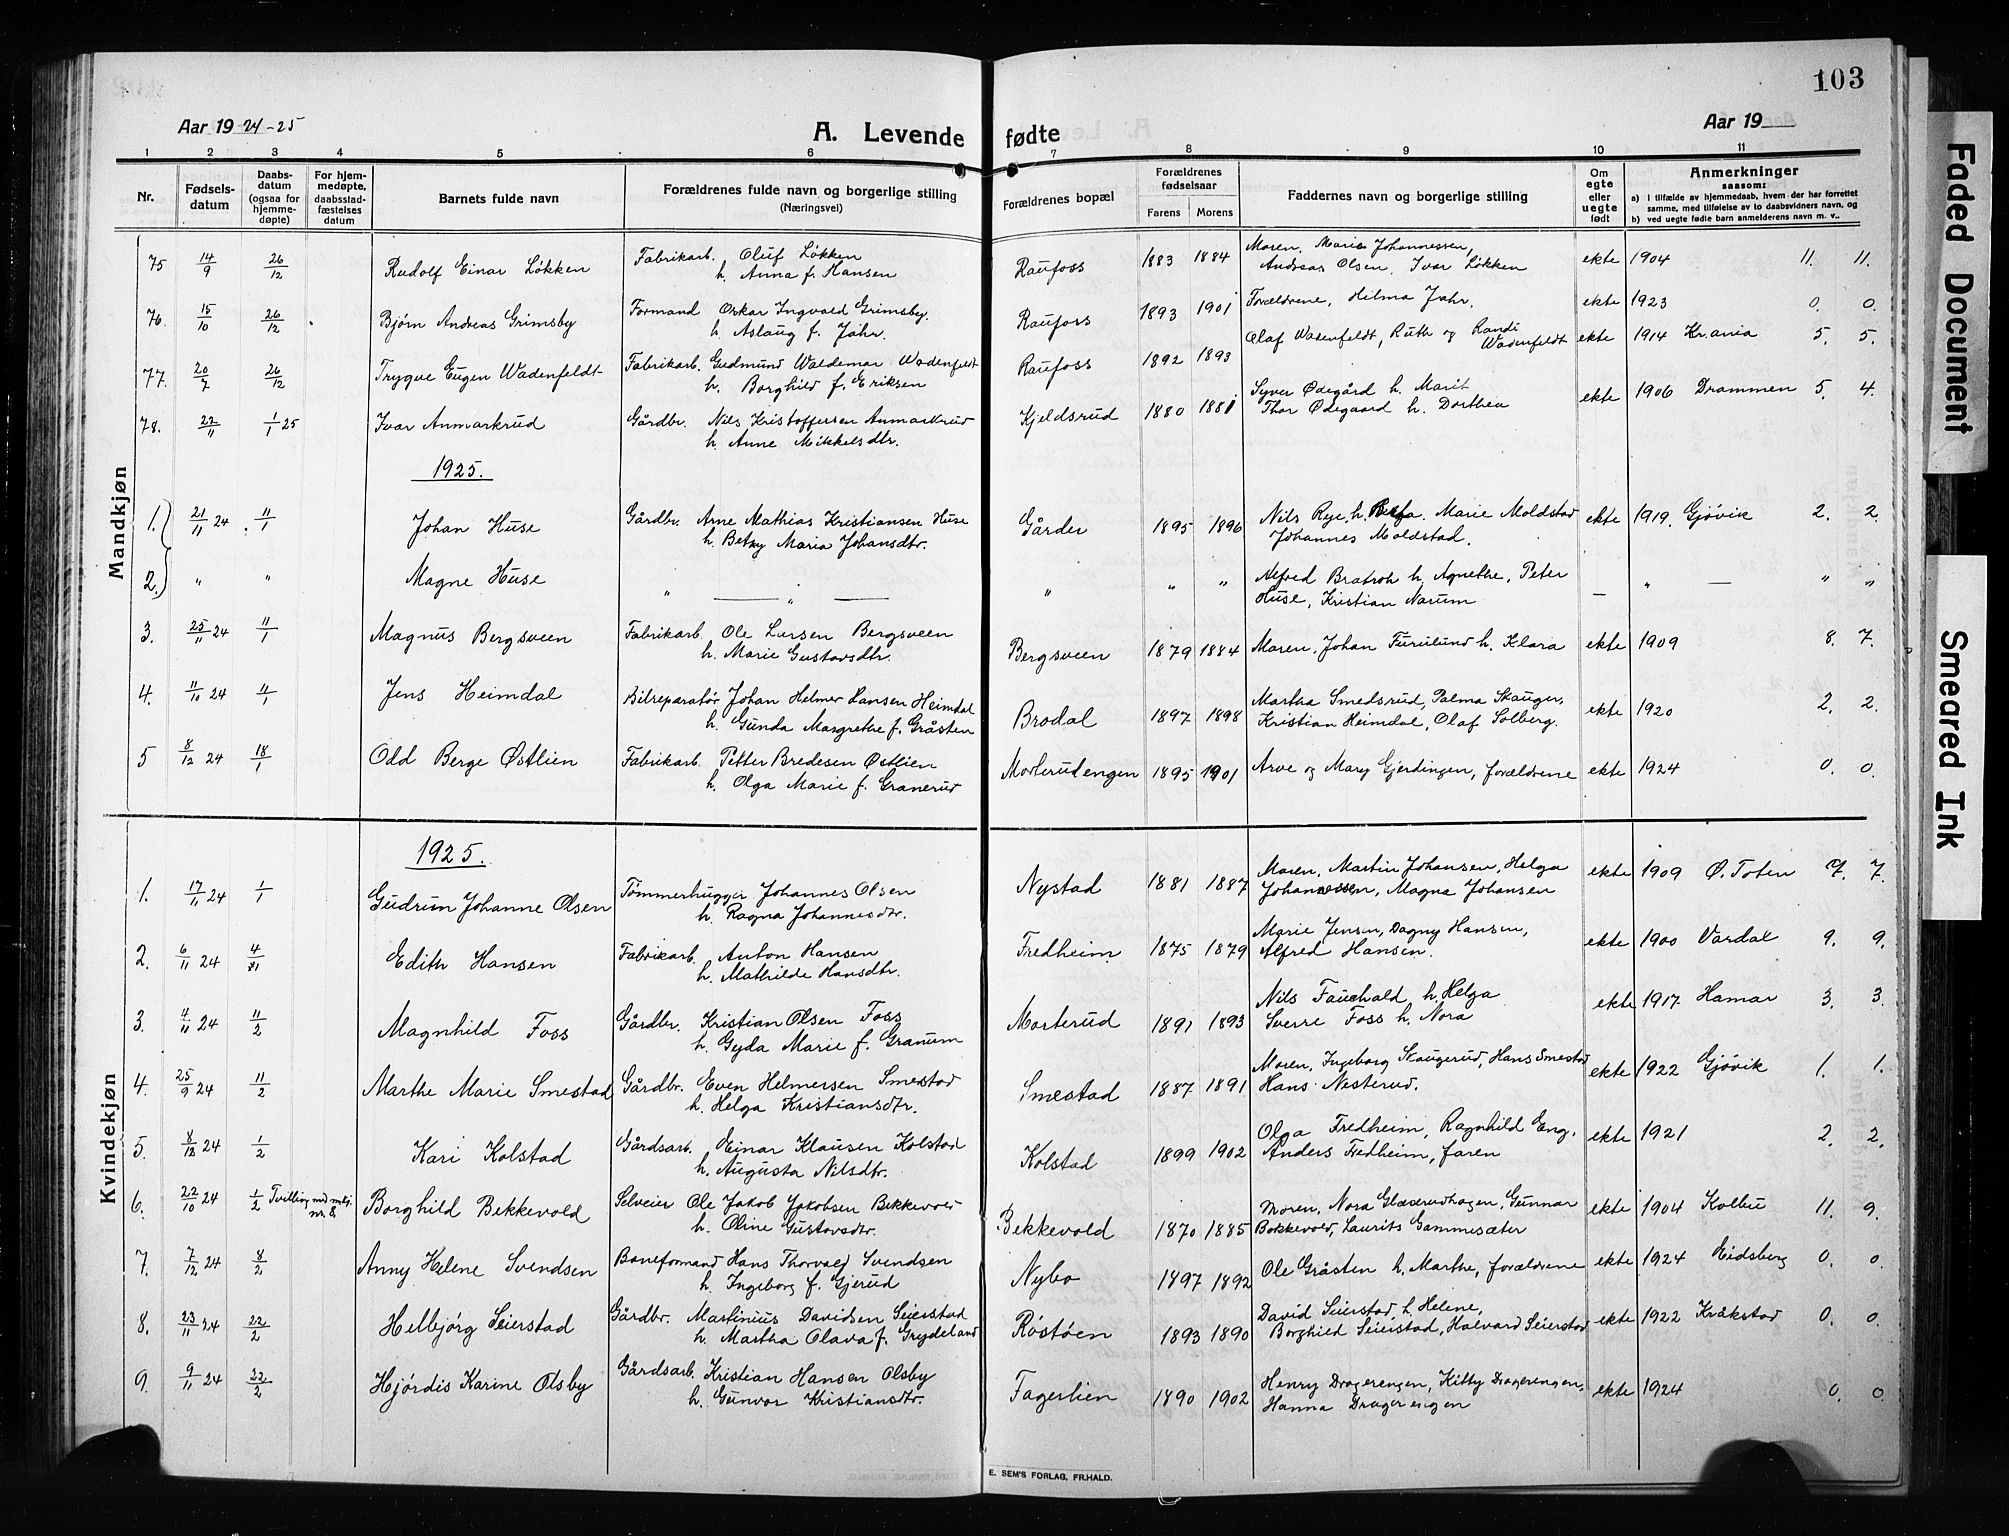 103
Aar 1924-25
A. Levende fødte
Aar 19
1 2 3 4 5 6 7 8 9 10 11
Nr.
Fødsels-datum
Daabs-datum (ogsaa for hjemme-døpte)
For hjem-medøpte, daabsstad-fæstelses datum
Barnets fulde navn
Forældrenes fulde navn og borgerlige stilling
(Næringsvei)
Forældrenes bopæl
Forældrenes fødselsaar
Farens Morens
Faddernes navn og borgerlige stilling
Om egte eller uegte født
Anmerkninger
saasom:
a) i tilfælde av hjemmedaab, hvem der har forrettet samme, med tilføielse av to daabsvidners navn, og
b) ved uegte fødte barn anmelderens navn m. v..
Mandkjøn
75 14/9 26/12 Rudolf Einar Løkken Fabrikarb. Oluf Løkken
h. Anna f. Hansen Raufoss 1883 1884 Moren, Marie Johannessen,
Andreas Olsen, Ivar Løkken ekte 1904 11. 11.
76. 15/10 26/12 Bjørn Andreas Grimsby Formand Oskar Ingvald Grimsby.
h. Aslaug f. Jahr. Raufoss 1893 1901 Forældrene, Hilma Jahr. ekte 1923 0. 0.
77. 20/7 26/12 Trygve Eugen Wadenfeldt Fabrikarb. Gudmund Waldemar Wadenfeldt
h. Borghild f. Eriksen Raufoss 1892 1893 Olaf Wadenfeldt, Ruth og Randi
Wadenfeldt ekte 1914 Kr.ania 5. 5.
78. 22/11 1/1 25 Ivar Anmarkrud Gårdbr. Nils Kristoffersen Anmarkrud
h. Anne Mikkelsdtr. Kjeldsrud 1880 1881 Syver Ødegård h. Marit
Thor Ødegaard h. Dorthea ekte 1906 Drammen 5. 4.
1925.
1. 21/11 24 11/1 Johan Huse Gårdbr. Arne Mathias Kristiansen Huse
h. Betzy Maria Johansdtr. Gårder 1895 1896 Nils Rye, h. Marie Moldstad
Johannes Moldstad. ekte 1919. Gjøvik 2. 2.
2. " " Magne Huse " " " " " Alfred Bratroh h. Agnethe, Peter
Huse, Kristian Narum — " — " "
3. 25/11 24 11/1 Magnus Bergsveen Fabrikarb. Ole Larsen Bergsveen
h. Marie Gustavsdtr. Bergsveen 1879 1884 Moren, Johan Furulund h. Klara ekte 1909 8. 7.
4. 11/10 24 11/1 Jens Heimdal Bilreparatør Johan Helmer Larsen Heimdal
h. Gunda Margrethe f. Gråsten Brodal 1897 1898 Martha Smedsrud, Palma Skauger,
Kristian Heimdal, Olaf Solberg. ekte 1920 2. 2.
5 8/12 24 18/1 Odd Berge Østlien Fabrikarb. Petter Bredesen Østlien
h. Olga Marie f. Granerud Morterudengen 1895 1901 Arve og Mary Gjerdingen, forældrene ekte 1924 0. 0.
Kvindekjøn
1925.
1. 17/11 24 1/1 Gudrun Johanne Olsen Tømmerhugger Johannes Olsen
h. Ragna Johannesdtr. Nystad 1881 1887 Moren, Martin Johansen, Helga
Johannessen, Magna Johansen ekte 1909 Ø. Toten 7. 7.
2. 6/11 24 Edith Hansen Fabrikarb. Anton Hansen
h. Mathilde Hansdtr. Fredheim 1875 1879 Marie Jensen, Dagny Hansen,
Alfred Hansen. ekte 1900 Vardal 9. 9.
3. 4/11 24 11/2 Magnhild Foss Gårdbr. Kristian Olsen Foss
h. Gyda Marie f. Granum Morterud 1891 1893 Nils Fauchald h. Helga
Sverre Foss h. Nora ekte 1917 Hamar 3. 3.
4. 25/9 24 11/2 Marthe Marie Smestad Gårdbr. Even Helmersen Smestad
h. Helga Kristiansdtr. Smestad 1887 1891 Moren, Ingeborg Skaugerud, Hans Smestad
Hans Nesterud. ekte 1922 Gjøvik 1. 1.
5. 8/12 24 1/2 Kari Kolstad Gårdsarb. Einar Klausen Kolstad
h. Augusta Nilsdtr. Kolstad 1899 1902 Olga Fredheim, Ragnhild Eng,
Anders Fredheim, faren ekte 1921 2. 2.
6. 22/10 24 1/2 Tvilling med mkj. nr. 8. Borghild Bekkevold Selveier Ole Jakob Jakobsen Bekkevold
h. Oline Gustavsdtr. Bekkevold 1870 1885 Moren, Nora Glæserudhagen, Gunnar
Bekkevold, Laurits Gammesæter ekte 1904 Kolbu 11. 9.
7. 7/12 24 8/2 Anny Helene Svendsen Baneformand Hans Thorvald Svendsen
h. Ingeborg f. Gjerud Nybo 1897 1892 Ole Gråsten h. Marthe, forældrene ekte 1924 Eidsberg 0. 0.
8. 23/11 24 22/2 Helbjørg Seierstad Gårdbr. Martinius Davidsen Seierstad
h. Martha Olava f. Grydeland Røstøen 1893 1890 David Seierstad h. Helene,
Borghild Seierstad, Halvard Seierstad ekte 1922 Kråkstad 0. 0.
9. 9/11 24 22/2 Hjørdis Karine Olsby Gårdsarb. Kristian Hansen Olsby
h. Gunvor Kristiansdtr. Fagerlien 1890 1902 Henry Dragerengen, Kitty Dragerengen,
Hanna Dragerengen ekte 1924 0. 0.
E. SEM'S FORLAG, FR.HALD.
Faded Document
Smeared Ink